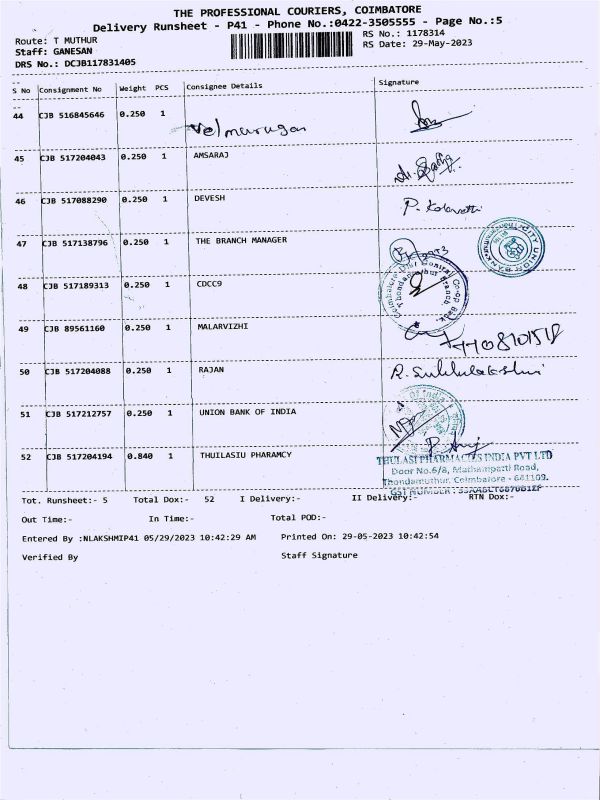 THE PROFESSIONAL COURIERS, COIMBATORE
Delivery Runsheet - P41 - Phone No.:0422-3505555 - Page No.:5
Route: T MUTHUR
RS No.: 1178314
Staff: GANESAN
RS Date: 29-May-2023
DRS No.: DCJB117831405
S No Consignment No Weight PCS Consignee Details Signature
44 CJB 516845646 0.250 1 Velmurugan
45 CJB 517204043 0.250 1 AMSARAJ
46 CJB 517088290 0.250 1 DEVESH P. Kalavathi
47 CJB 517138796 0.250 1 THE BRANCH MANAGER
48 CJB 517189313 0.250 1 CDCC9
49 CJB 89561160 0.250 1 MALARVIZHI
50 CJB 517204088 0.250 1 RAJAN
51 CJB 517212757 0.250 1 UNION BANK OF INDIA
52 CJB 517204194 0.840 1 THUILASIU PHARAMCY
THULASI PHARMACIES INDIA PVT LTD
Door No.6/8, Mathampatti Road,
Thondamuthur, Coimbatore - 641109.
GST NUMBER :
Tot. Runsheet:- 5 Total Dox:- 52 I Delivery:- II Delivery:- RTN Dox:-
Out Time:- In Time:- Total POD:-
Entered By :NLAKSHMIP41 05/29/2023 10:42:29 AM Printed On: 29-05-2023 10:42:54
Verified By Staff Signature